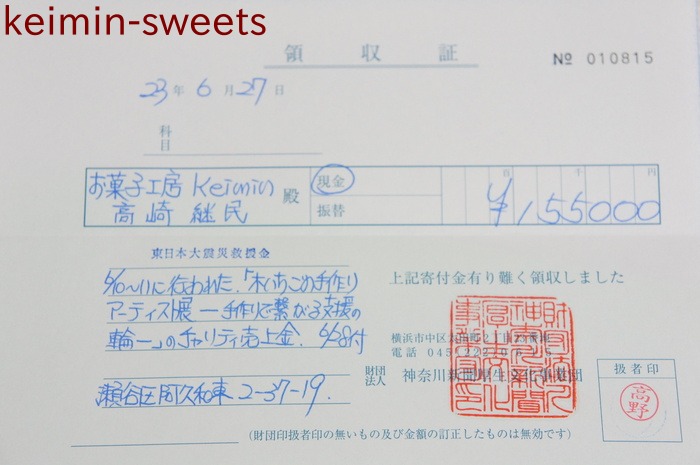 keimin-sweets
領収証
№ 010815
23年6月27日
科目
お菓子工房 Keimin
高崎 継民 殿
現金
振替
百 千 円
¥155000
東日本大震災救援金
6/10~11に行われた、「木いちごの手作り
アーティスト展 ―手作りで繋がる支援の
輪―」のチャリティ売上金、6/28付
瀬谷区阿久和東 2-37-19.
上記寄付金有り難く領収しました
横浜市中区
電話 045
財団法人 神奈川新聞厚生文化事業団
扱者印
高野
(財団印扱者印の無いもの及び金額の訂正したものは無効です)